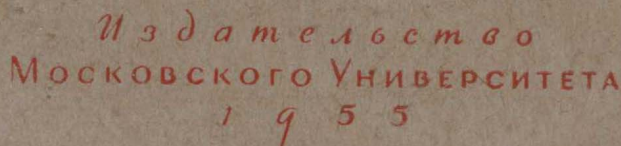 Издательство
Московского Университета
1955